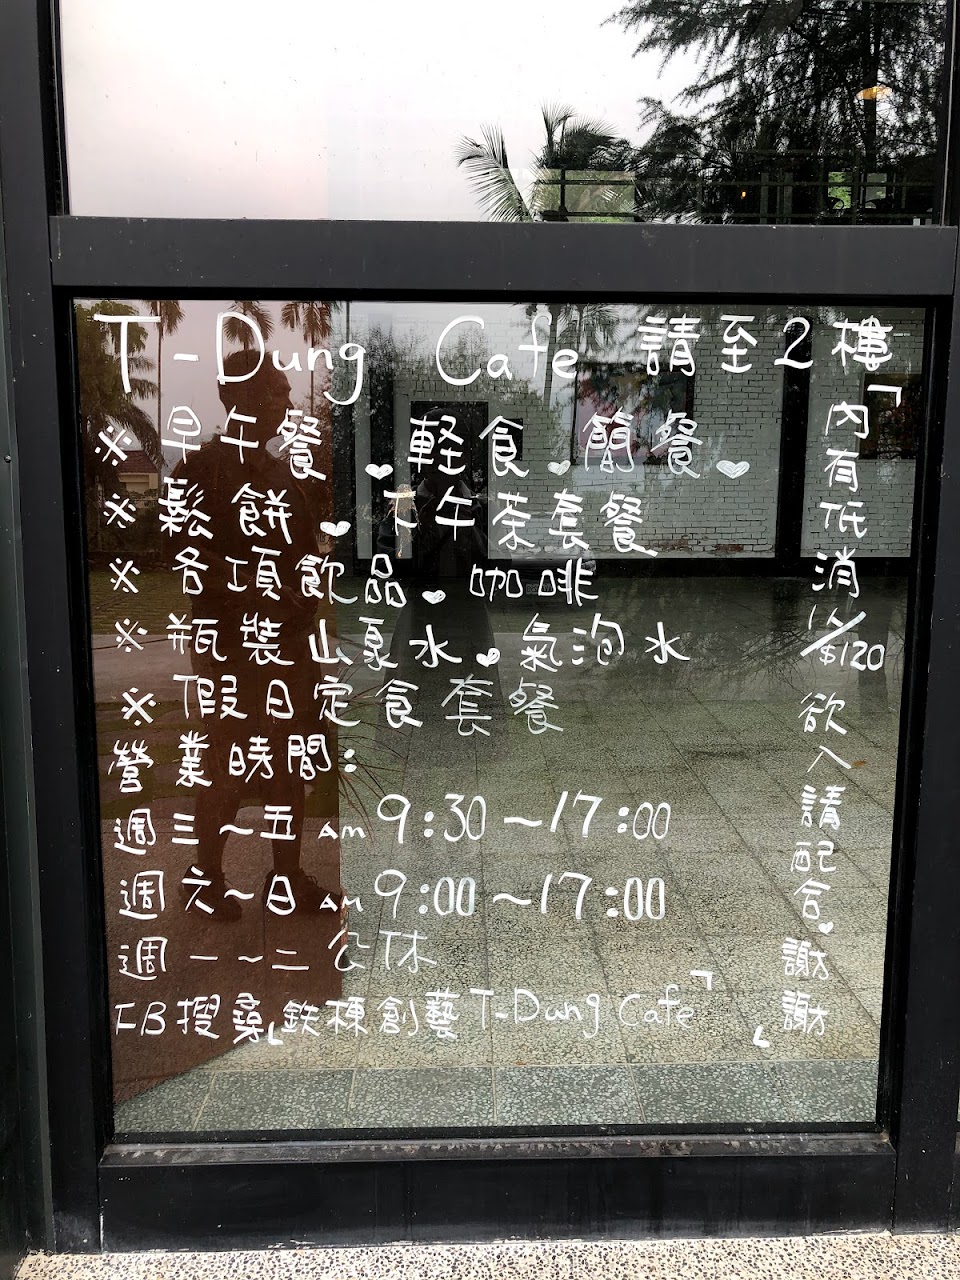 T-Dung Cafe 請至2樓
※早午餐、軽食、簡餐、
※鬆餅、下午茶套餐
※各項飲品、咖啡
※瓶裝山泉水、氣泡水
※假日定食套餐
營業時間:
週三~五 am 9:30~17:00
週六~日 am 9:00~17:00
週一~二公休
FB搜尋「鉄棟創藝T-Dung Cafe」
「內有低消1人/$120欲入請配合、謝謝」